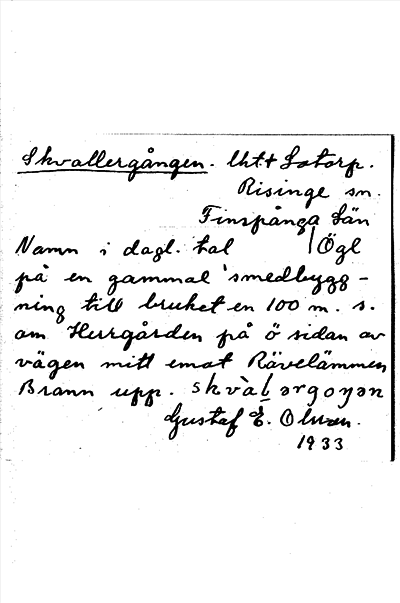 Skvallergången. Utt+ Sotorp.
Risinge sn.
Finspånga Län
Namn i dagl. tal /Ögl
på en gammal smedbygg-
ning till bruket en 100 m. s.
om Herrgården på ö sidan av
vägen mitt emot Rävelämmen
Brann upp. skvàlərgoŋən
Gustaf E. Olsson.
1933